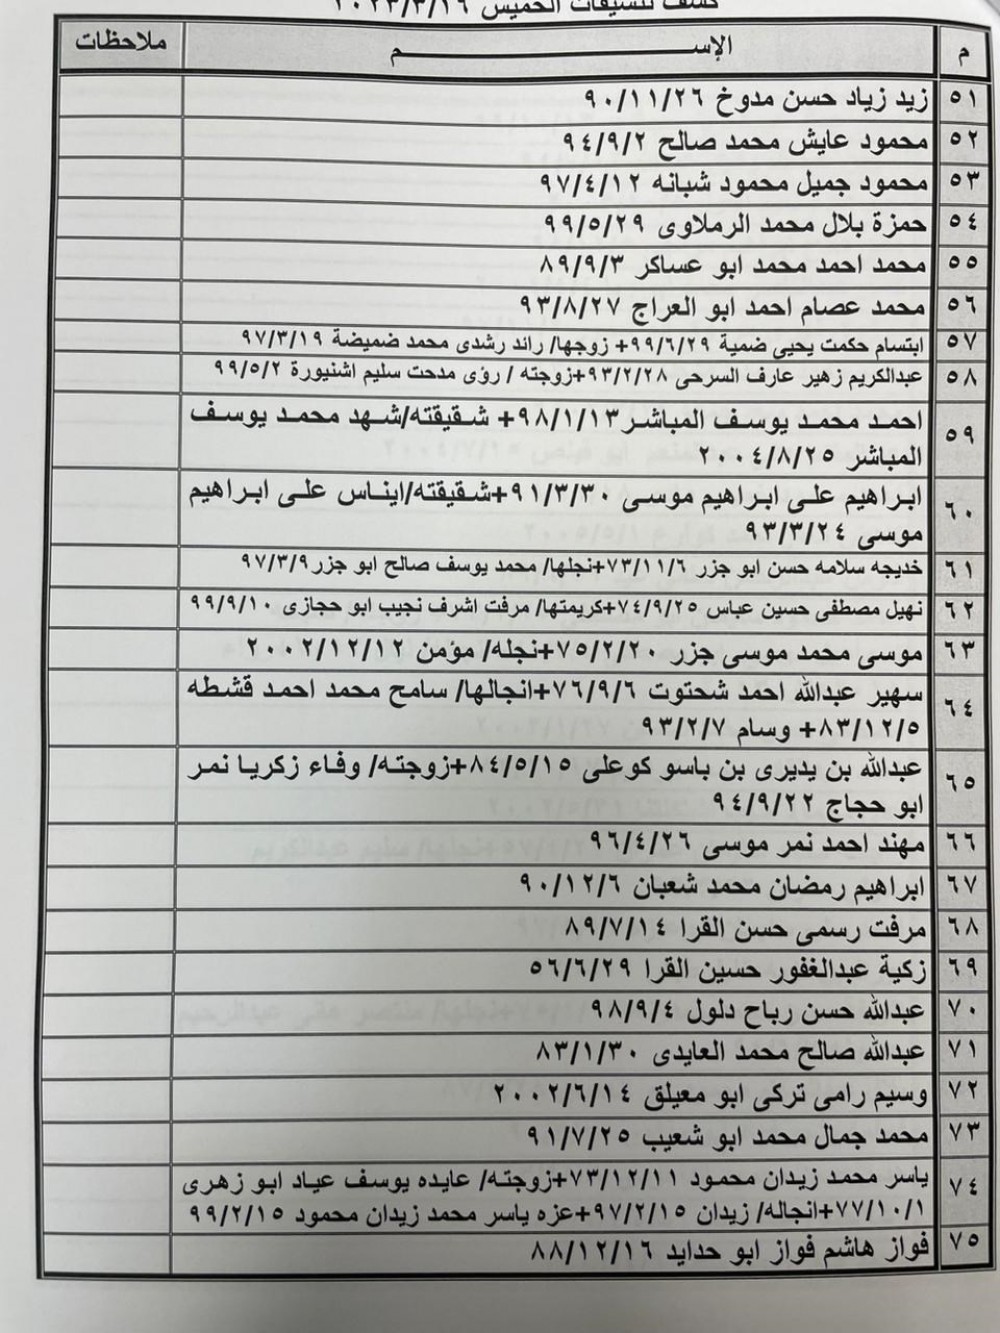 كشف تنسيقات الخميس ٢٠٢٣/٣/١٦
م الإســـــم ملاحظات
٥١ زيد زياد حسن مدوخ ٩٠/١١/٢٦
٥٢ محمود عايش محمد صالح ٩٤/٩/٢
٥٣ محمود جميل محمود شبانه ٩٧/٤/١٢
٥٤ حمزة بلال محمد الرملاوى ٩٩/٥/٢٩
٥٥ محمد احمد محمد ابو عساكر ٨٩/٩/٣
٥٦ محمد عصام احمد ابو العراج ٩٣/٨/٢٧
٥٧ ابتسام حكمت يحيى ضمية ٩٩/٦/٢٩+ زوجها/ رائد رشدى محمد ضميضة ٩٧/٣/١٩
٥٨ عبدالكريم زهير عارف السرحى ٩٣/٢/٢٨+زوجته / رؤى مدحت سليم اشنيورة ٩٩/٥/٢
٥٩ احمد محمد يوسف المباشر ٩٨/١/١٣+ شقيقته/شهد محمد يوسف
المباشر ٢٠٠٤/٨/٢٥
٦٠ ابراهيم على ابراهيم موسى ٩١/٣/٣٠+شقيقته/ايناس على ابراهيم
موسى ٩٣/٣/٢٤
٦١ خديجه سلامه حسن ابو جزر ٧٣/١١/٦+نجلها/ محمد يوسف صالح ابو جزر ٩٧/٣/٩
٦٢ نهيل مصطفى حسين عباس ٧٤/٩/٢٥+كريمتها/ مرفت اشرف نجيب ابو حجازى ٩٩/٩/١٠
٦٣ موسى محمد موسى جزر ٧٥/٢/٢٠+نجله/ مؤمن ٢٠٠٢/١٢/١٢
٦٤ سهير عبدالله احمد شحتوت ٧٦/٩/٦+انجالها/ سامح محمد احمد قشطه
٨٣/١٢/٥+ وسام ٩٣/٢/٧
٦٥ عبدالله بن يديرى بن باسو كوعلى ٨٤/٥/١٥+زوجته/ وفاء زكريا نمر
ابو حجاج ٩٤/٩/٢٢
٦٦ مهند احمد نمر موسى ٩٦/٤/٢٦
٦٧ ابراهيم رمضان محمد شعبان ٩٠/١٢/٦
٦٨ مرفت رسمى حسن القرا ٨٩/٧/١٤
٦٩ زكية عبدالغفور حسين القرا ٥٦/٦/٢٩
٧٠ عبدالله حسن رباح دلول ٩٨/٩/٤
٧١ عبدالله صالح محمد العايدى ٨٣/١/٣٠
٧٢ وسيم رامى تركى ابو معيلق ٢٠٠٢/٦/١٤
٧٣ محمد جمال محمد ابو شعيب ٩١/٧/٢٥
٧٤ ياسر محمد زيدان محمود ٧٣/١٢/١١+زوجته/ عايده يوسف عياد ابو زهرى
٧٧/١٠/١+انجاله/ زيدان ٩٧/٢/١٥+عزه ياسر محمد زيدان محمود ٩٩/٢/١٥
٧٥ فواز هاشم فواز ابو حدايد ٨٨/١٢/١٦